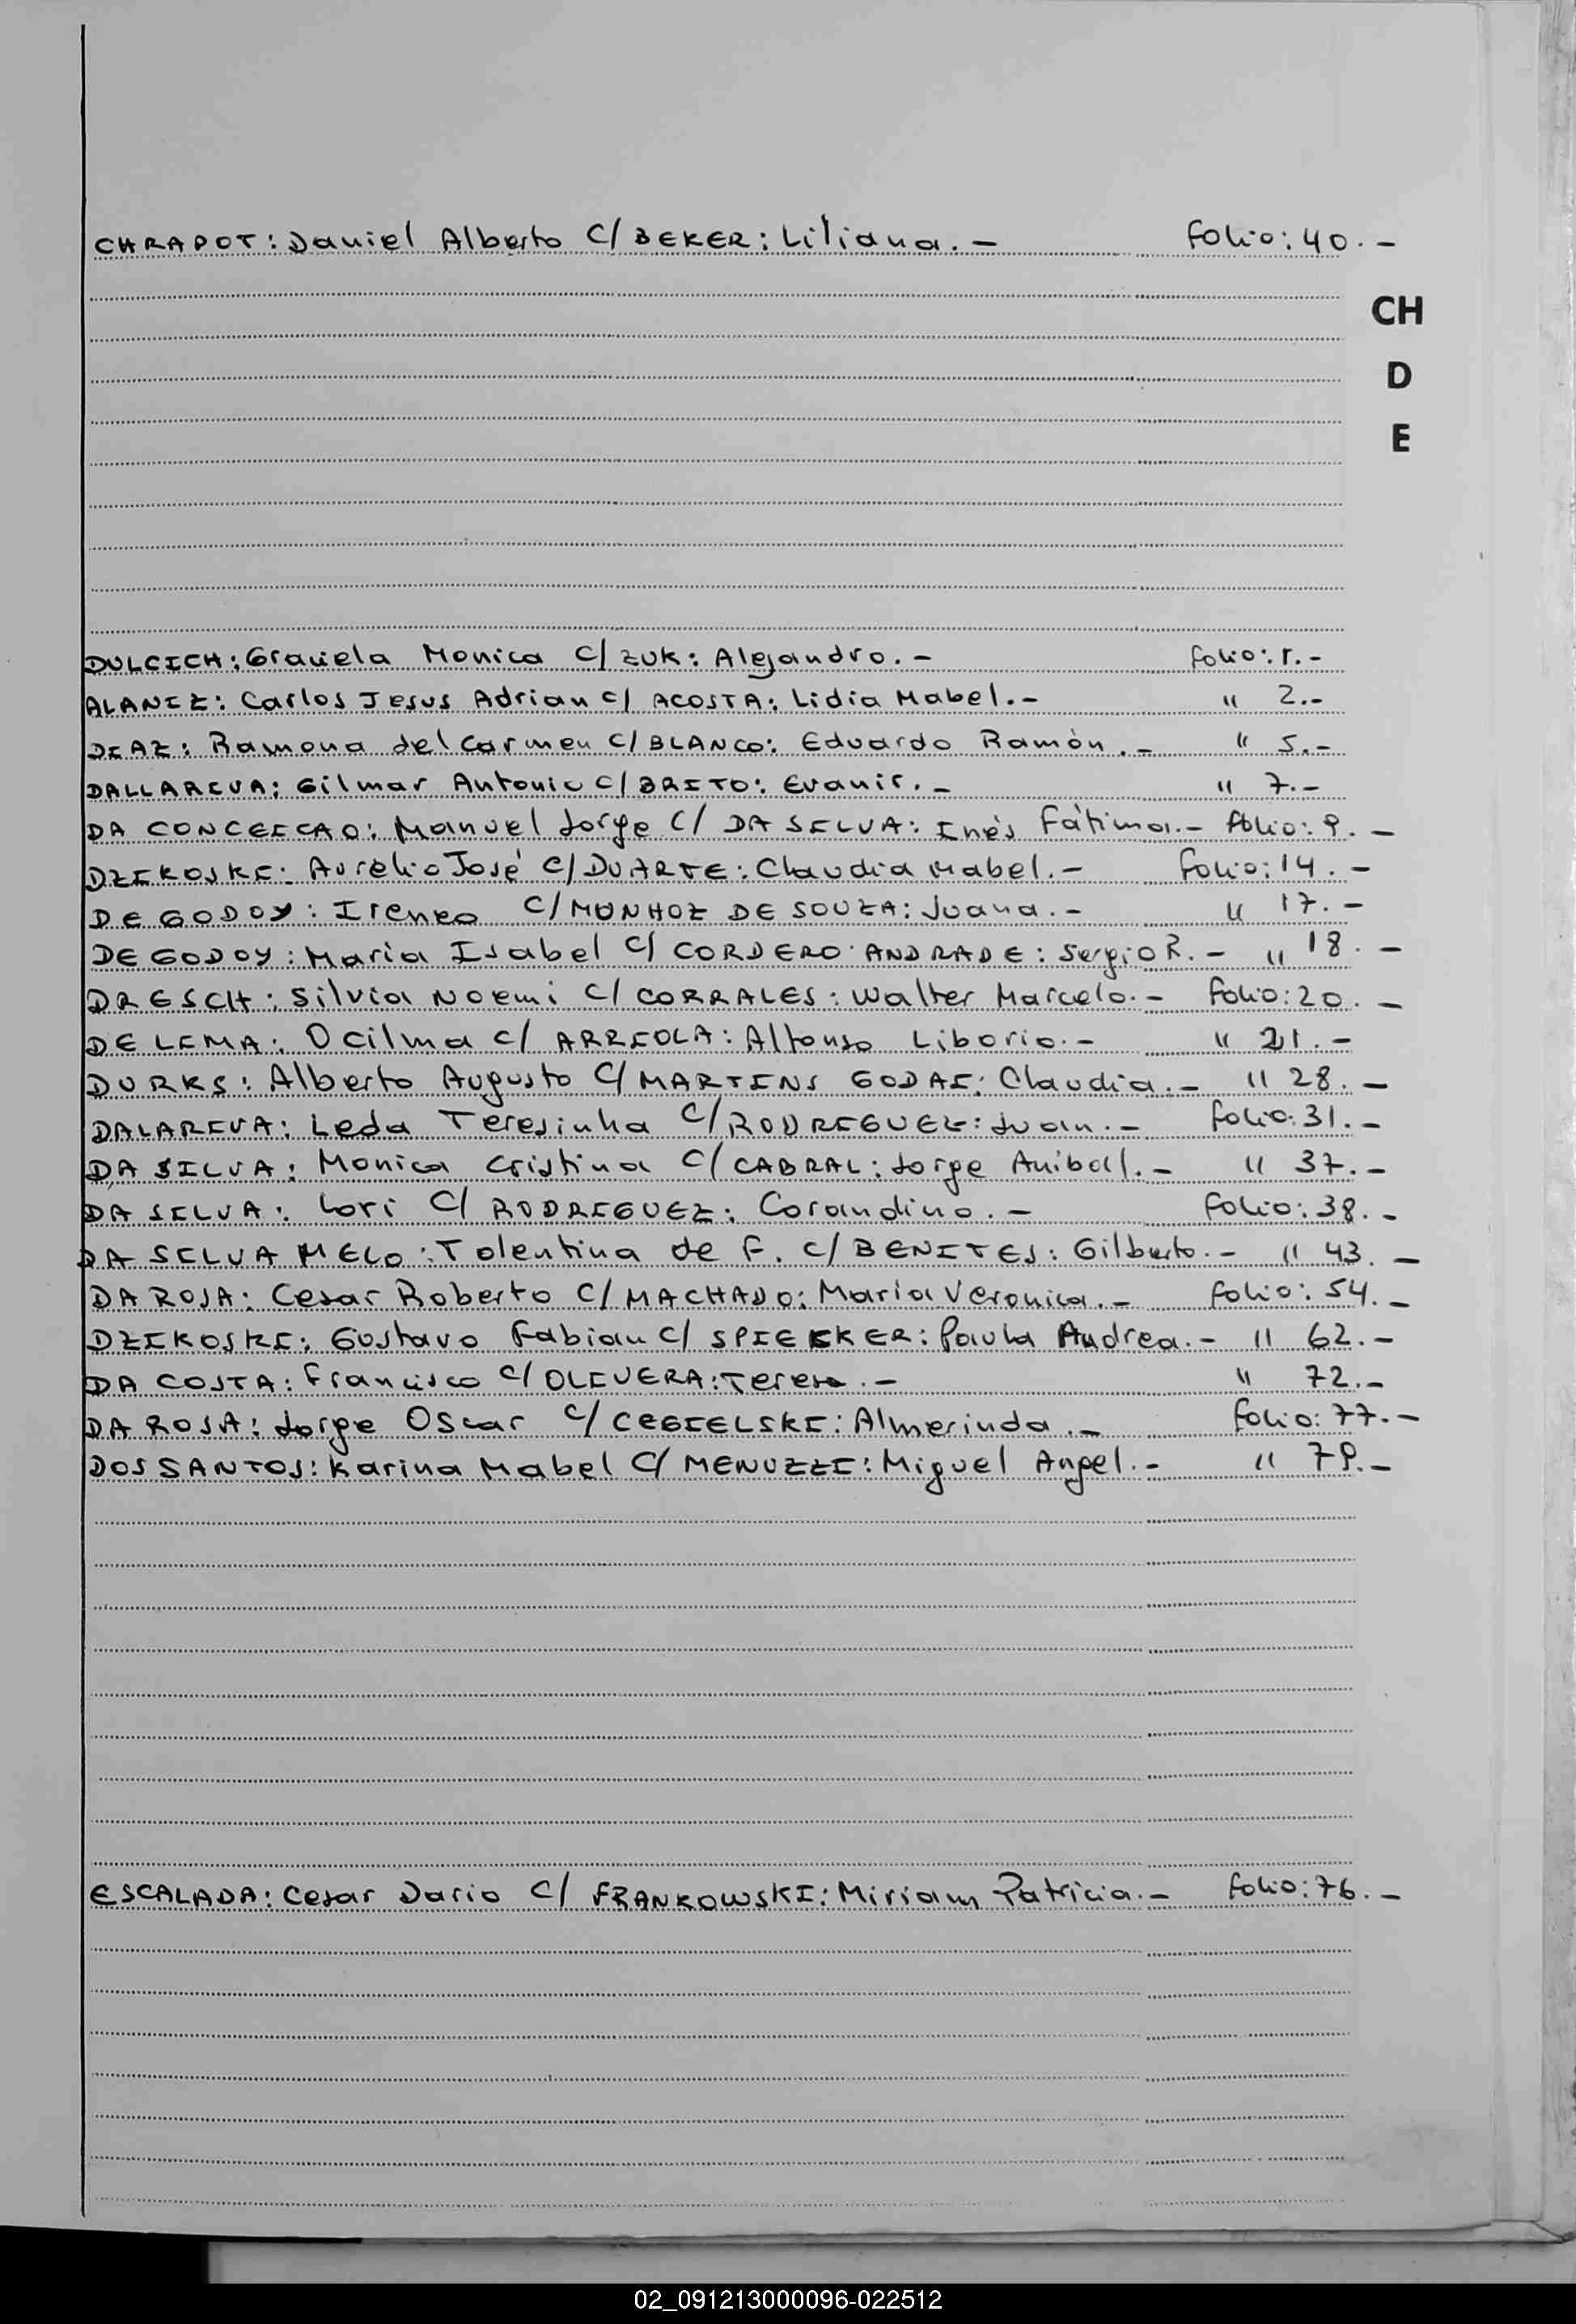 CHRAPOT: Daniel Alberto C/ BEKER: Liliana.- Folio: 40.-
CH
D
E
DULCICH: Graciela Monica C/ ZUK: Alejandro.- Folio: 1.-
ALANIZ: Carlos Jesus Adrian C/ ACOSTA: Lidia Mabel.- " 2.-
DIAZ: Ramona del Carmen C/ BLANCO: Eduardo Ramón.- " 5.-
DALLARIVA: Gilmar Antonio C/ BRITO: Evanir.- " 7.-
DA CONCEICAO: Manuel Jorge C/ DA SILVA: Inés Fátima.- Folio: 9.-
DZIKOSKI: Aurelio José C/ DUARTE: Claudia Mabel.- Folio: 14.-
DE GODOY: Ireneo C/ MUNHOZ DE SOUZA: Juana.- " 17.-
DE GODOY: Maria Isabel C/ CORDERO ANDRADE: Sergio R.- " 18.-
DRESCH: Silvia Noemi C/ CORRALES: Walter Marcelo.- Folio: 20.-
DE LIMA: Ocilma C/ ARRIOLA: Alfonso Liborio.- " 21.-
DURKS: Alberto Augusto C/ MARTINS GODAI: Claudia.- " 28.-
DALARIVA: Leda Teresinha C/ RODRIGUEZ: Juan.- Folio: 31.-
DA SILVA: Monica Cristina C/ CABRAL: Jorge Anibal.- " 37.-
DA SILVA: Lori C/ RODRIGUEZ: Corandino.- Folio: 38.-
DA SILVA MELO: Tolentina de F. C/ BENITES: Gilberto.- " 43.-
DA ROSA: Cesar Roberto C/ MACHADO: Maria Veronica.- Folio: 54.-
DZIKOSKI: Gustavo Fabian C/ SPIEKKER: Paula Andrea.- " 62.-
DA COSTA: Francisco C/ OLIVERA: Teresa.- " 72.-
DA ROSA: Jorge Oscar C/ CEGIELSKI: Almerinda.- Folio: 77.-
DOS SANTOS: Karina Mabel C/ MENUZZI: Miguel Angel.- " 79.-
ESCALADA: Cesar Dario C/ FRANKOWSKI: Miriam Patricia.- Folio: 76.-
02_091213000096-022512